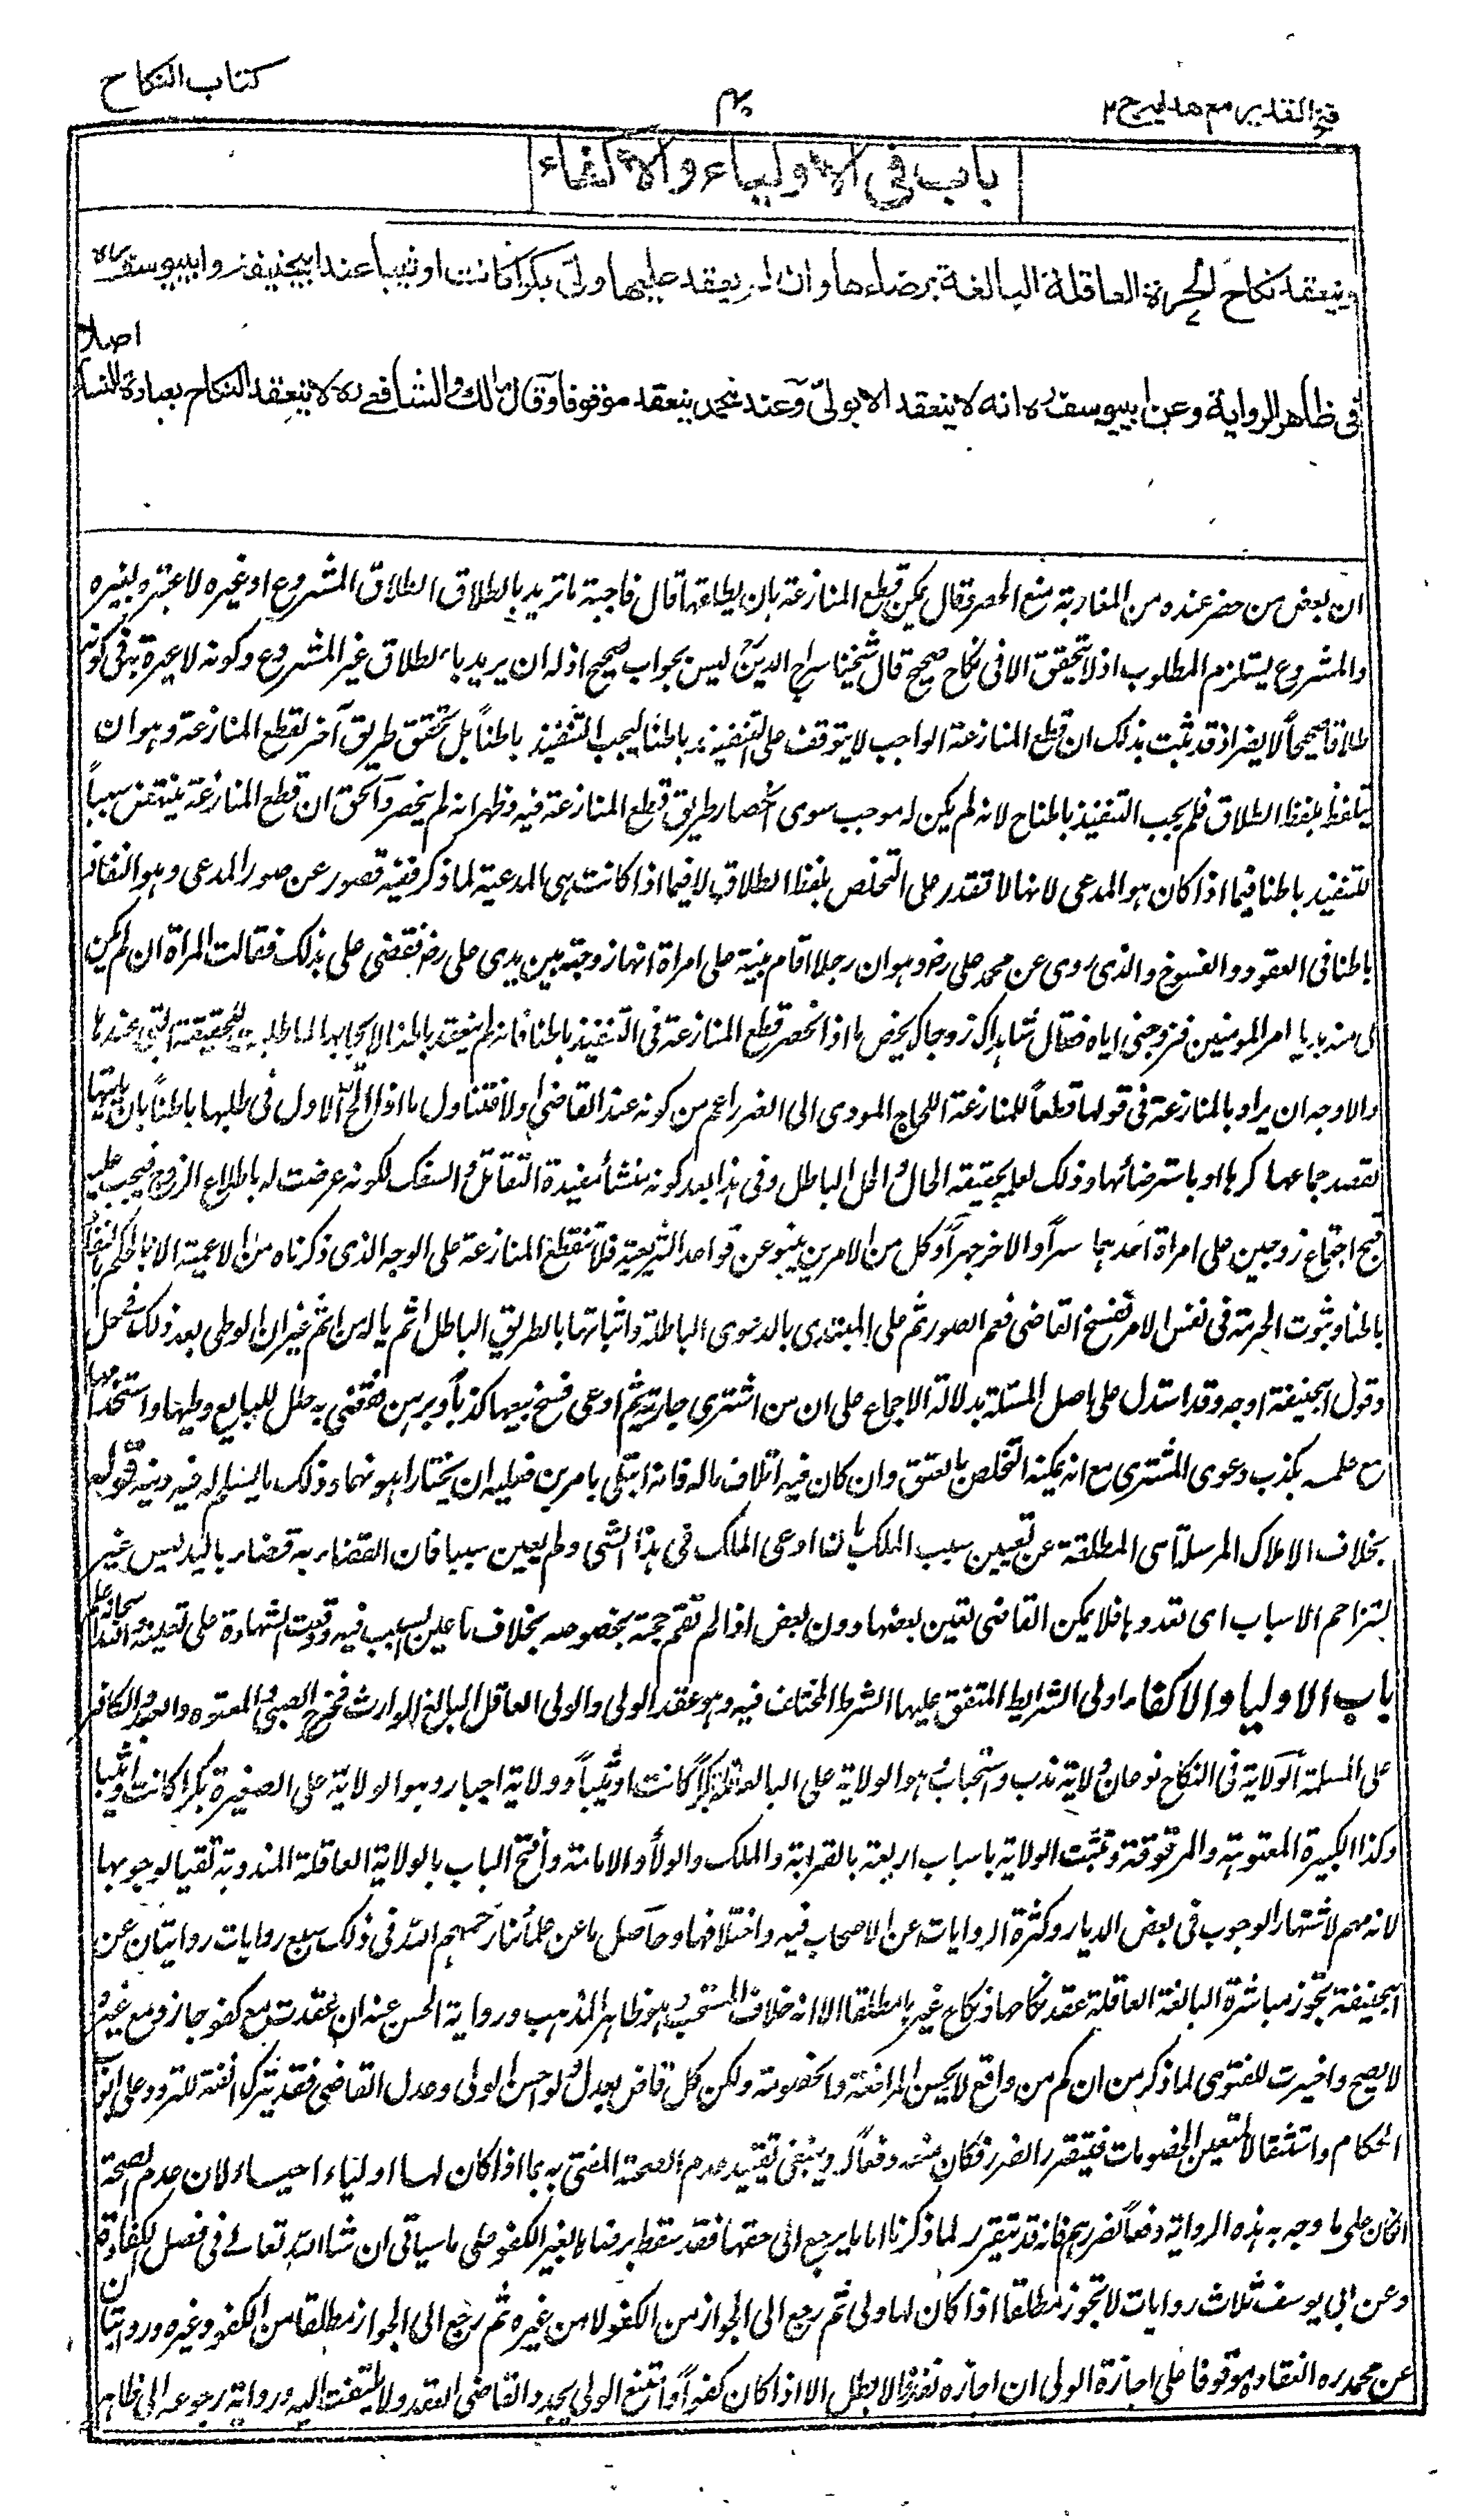 كتاب النكاح
فتح القدير مع هدايه ج ٢
باب فى الاولياء والاكفاء
وينعقد نكاح الحرة العاقلة البالغة برضاءها وان لم يعقد عليها ولى بكرا كانت او ثيبا عند ابيحنيفة وابييوسف
اصلا
فى ظاهر الرواية وعن ابييوسف ره انه لا ينعقد الا بولى وعند محمد ينعقد موقوفا وقال مالك والشافعے ره لا ينعقد النكاح بعبارة النساء
ان بعض من حضر عنده من المغاربة منع الحصر فقال يمكن قطع المنازعة بان يطلقها قال فاجبته ما تريد بالطلاق الطلاق المشروع او غيره لا عبرة بغيره
والمشروع يستلزم المطلوب اذ لا يتحقق الا فى نكاح صحيح قال شيخنا سراج الدين ليس بجواب صحيح اذ له ان يريد بالطلاق غير المشروع وكونه لا عبرة به فى كونه
طلاقا صحيحاً لا يضر اذ قد ثبت بذلك ان قطع المنازعة الواجب لا يتوقف على التنفيذ باطنا ليجب التنفيذ باطناً بل تحقق طريق آخر لقطع المنازعة وهو ان
يتلفظ بلفظ الطلاق فلم يجب التنفيذ باطنا لانه لم يكن له موجب سوى انحصار طريق قطع المنازعة فيه وظهر انه لم ينحصر والحق ان قطع المنازعة ينتهض سبباً
للتنفيذ باطنا فيما اذا كان هو المدعى لانها لا تقدر على التخلص بلفظ الطلاق لا فيما اذا كانت هى المدعية لما ذكر ففيه قصور عن صور المدعى وهو النفاذ
باطنا فى العقود والفسوخ والذى روى عن محمد على رض وهو ان رجلا اقام بينة على امراة انها زوجته بين يدى على رض فقضى على بذلك فقالت المراة ان لم يكن
لى منه بد يا امير المومنين فزوجنى اياه فقال شاهداك زوجاك يخص ما اذا انحصر قطع المنازعة فى التنفيذ باطنا فانه لم ينعقد باطنا لاجابها لما طلبت للحقيقة التى عندها
والاوجه ان يراد بالمنازعة فى قولنا قطعاً للمنازعة اللجاج المودى الى الضرر اعم من كونه عند القاضى اولا فتناول ما اذا الح الاول فى طلبها باطناً بان ياتيها
لقصد جماعها كرها او باسترضائها وذلك لعلمه بحقيقة الحال والحل الباطل وفى هذا بعد كونه منشأ مفسدة التقاتل والسفك لكونه عرضت له باطلاع الزوج فيجب عليه
قبح اجتماع زوجين على امراة احدهما سراً والاخر جهراً وكل من الامرين ينبو عن قواعد الشريعة فلا تنقطع المنازعة على الوجه الذى ذكرناه من الاعمية الا بالحكم بنفاذه
باطنا وثبوت الحرمة فى نفس الامر بفسخ القاضى فعم الصور ثم على المبتدى بالدعوى الباطلة واثباتها بالطريق الباطل اثم يا له من اثم غير ان الوطى بعد ذلك فے حل
وقول ابيحنيفة اوجه وقد استدل على اصل المسئلة بدلالة الاجماع على ان من اشترى جارية ثم ادعى فسخ بيعها كذباً وبرهن فقضى به حل للبايع وطيها واستخدامها
مع علمه بكذب دعوى المشترى مع انه يمكنه التخلص بالعتق وان كان فيه اتلاف ماله فانه ابتلى بامرين فعليه ان يختار اهونهما وذلك ما يسلم له فيه دينه قوله
بخلاف الاملاك المرسلة اى المطلقة عن تعيين سبب الملك بان ادعى الملك فى هذا الشى ولم يعين سببا فان القضاء به قضاء باليد ليس غير
لتزاحم الاسباب اى تعددها فلا يمكن القاضى تعيين بعضها دون بعض اذا لم تقم حجة بخصوصه بخلاف ما عين السبب فيه ووقعت الشهادة على تعينه والله سبحانه اعلم
باب الاوليا والاكفا اولى الشرايط المتفق عليها الشرط المختلف فيه وهو عقد الولى والولى العاقل البالغ الوارث فخرج الصبى والمعتوه والعبد والكافر
على المسلمة الولاية فى النكاح نوعان ولاية ندب واستحباب وهو الولاية على البالغة العاقلة بكراً كانت او ثيباً وولاية اجبار وهو الولاية على الصغيرة بكرا كانت او ثيبا
وكذا الكبيرة المعتوهة والمرقوقة وتثبت الولاية باسباب اربعة بالقرابة والملك والولأ والامامة وافتتح الباب بالولاية العاقلة المندوبة نفيا لوجوبها
لانه مهم لاشتهار الوجوب فى بعض الديار وكثرة الروايات عن الاصحاب فيه واختلافها وحاصل ما عن علمأنا رحمهم الله فى ذلك سبع روايات روايتان عن
ابيحنيفة تجوز مباشرة البالغة العاقلة عقد نكاحها ونكاح غيرها مطلقا الا انه خلاف المستحب وهو ظاهر المذهب ورواية الحسن عنه ان عقدت مع كفو جاز ومع غيره
لا يصح واختيرت للفتوى لما ذكر من ان كم من واقع لا يحسن المرافعة والخصومة ولكن كل قاض يعدل ولو احسن الولى وعدل القاضى فقد يترك انفة للتردد على ابواب
الحكام واستثقالا لنفس الخصومات فيتقرر الضرر فكان منعه دفعاً له وينبغى تقييد عدم الصحة المفتى به بما اذا كان لها اولياء احياء لان عدم الصحة
انما كان على ما وجه به هذه الرواية دفعاً لضررهم فانه قد يتقرر لما ذكرنا اما ما يرجع الى حقها فقد سقط برضاها بغير الكفو على ما سياتى ان شا الله تعالے فى فصل الكفاءة
وعن ابى يوسف ثلاث روايات لا تجوز مطلقا اذا كان لها ولى ثم رجع الى الجواز من الكفو لا من غيره ثم رجع الى الجواز مطلقا من الكفو وغيره وروايتان
عن محمد ره انعقاده موقوفا على اجازة الولى ان اجازه نفذ والا بطل الا اذا كان كفواً وامتنع الولى يجدد القاضى العقد ولا يلتفت اليه ورواية رجوعه الى ظاهر